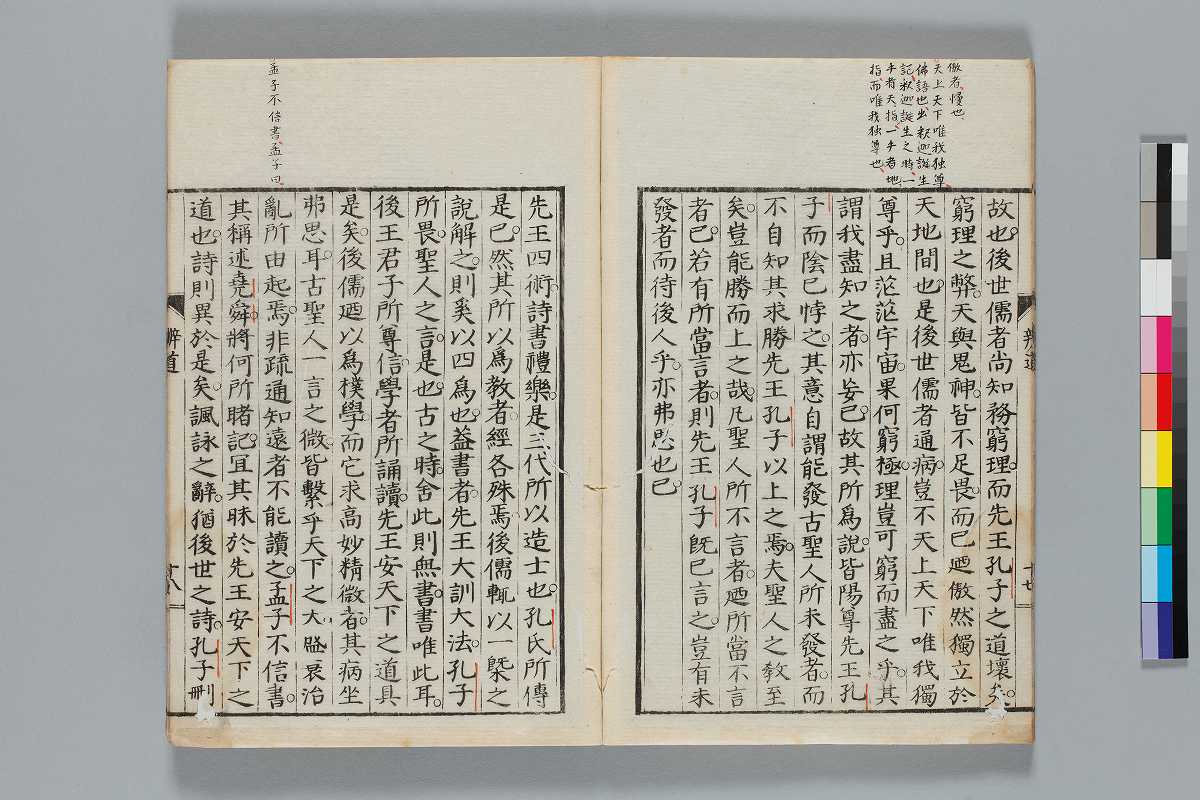 傲者慢也
天上天下唯我独尊
佛語也出釈迦誕生
記釈迦誕生之時一
手者天指一手者地
指而唯我独尊也
故也後世儒者尚知務窮理而先王孔子之道壞矣
窮理之弊天與鬼神皆不足畏而已廼傲然獨立於
天地間也是後世儒者通病豈不天上天下唯我獨
尊乎且茫茫宇宙果何窮極理豈可窮而盡之乎其
謂我盡知之者亦妄已故其所爲說皆陽尊先王孔
子而陰已悖之其意自謂能發古聖人所未發者而
不自知其求勝先王孔子以上之焉夫聖人之教至
矣豈能勝而上之哉凡聖人所不言者廼所當不言
者已若有所當言者則先王孔子既已言之豈有未
發者而待後人乎亦弗思也已
辨道
十七
孟子不信書孟子曰
先王四術詩書禮樂是三代所以造士也孔氏所傳
是已然其所以爲教者經各殊焉後儒輒以一槩之
說解之則奚以四爲也蓋書者先王大訓大法孔子
所畏聖人之言是也古之時舍此則無書書唯此耳
後王君子所尊信學者所誦讀先王安天下之道具
是矣後儒廼以爲樸學而它求高妙精微者其病坐
弗思耳古聖人一言之微皆繫乎天下之大盛衰治
亂所由起焉非疏通知遠者不能讀之孟子不信書
其稱述堯舜將何所睹記冝其昧於先王安天下之
道也詩則異於是矣諷詠之辭猶後世之詩孔子刪
辨道
十八